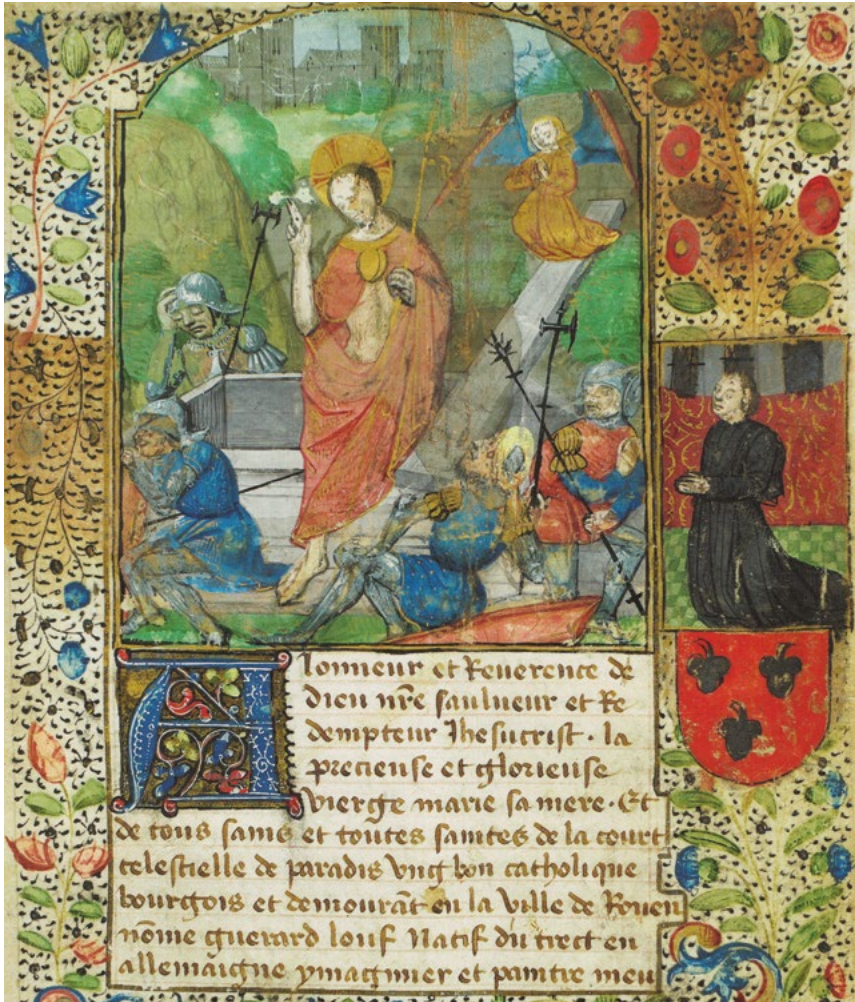 A lonneur et Reverence de
dieu nr̃e saulueur et Re
dempteur Jhesucrist. la
precieuse et glorieuse
vierge marie sa mere. Et
de tous sains et toutes saintes de la court
celestielle de paradis vng bon catholique
bourgois et demourãt en la ville de Rouen
nõme guerard louf Natif du trect en
allemaigne ymaginier et paintre meu